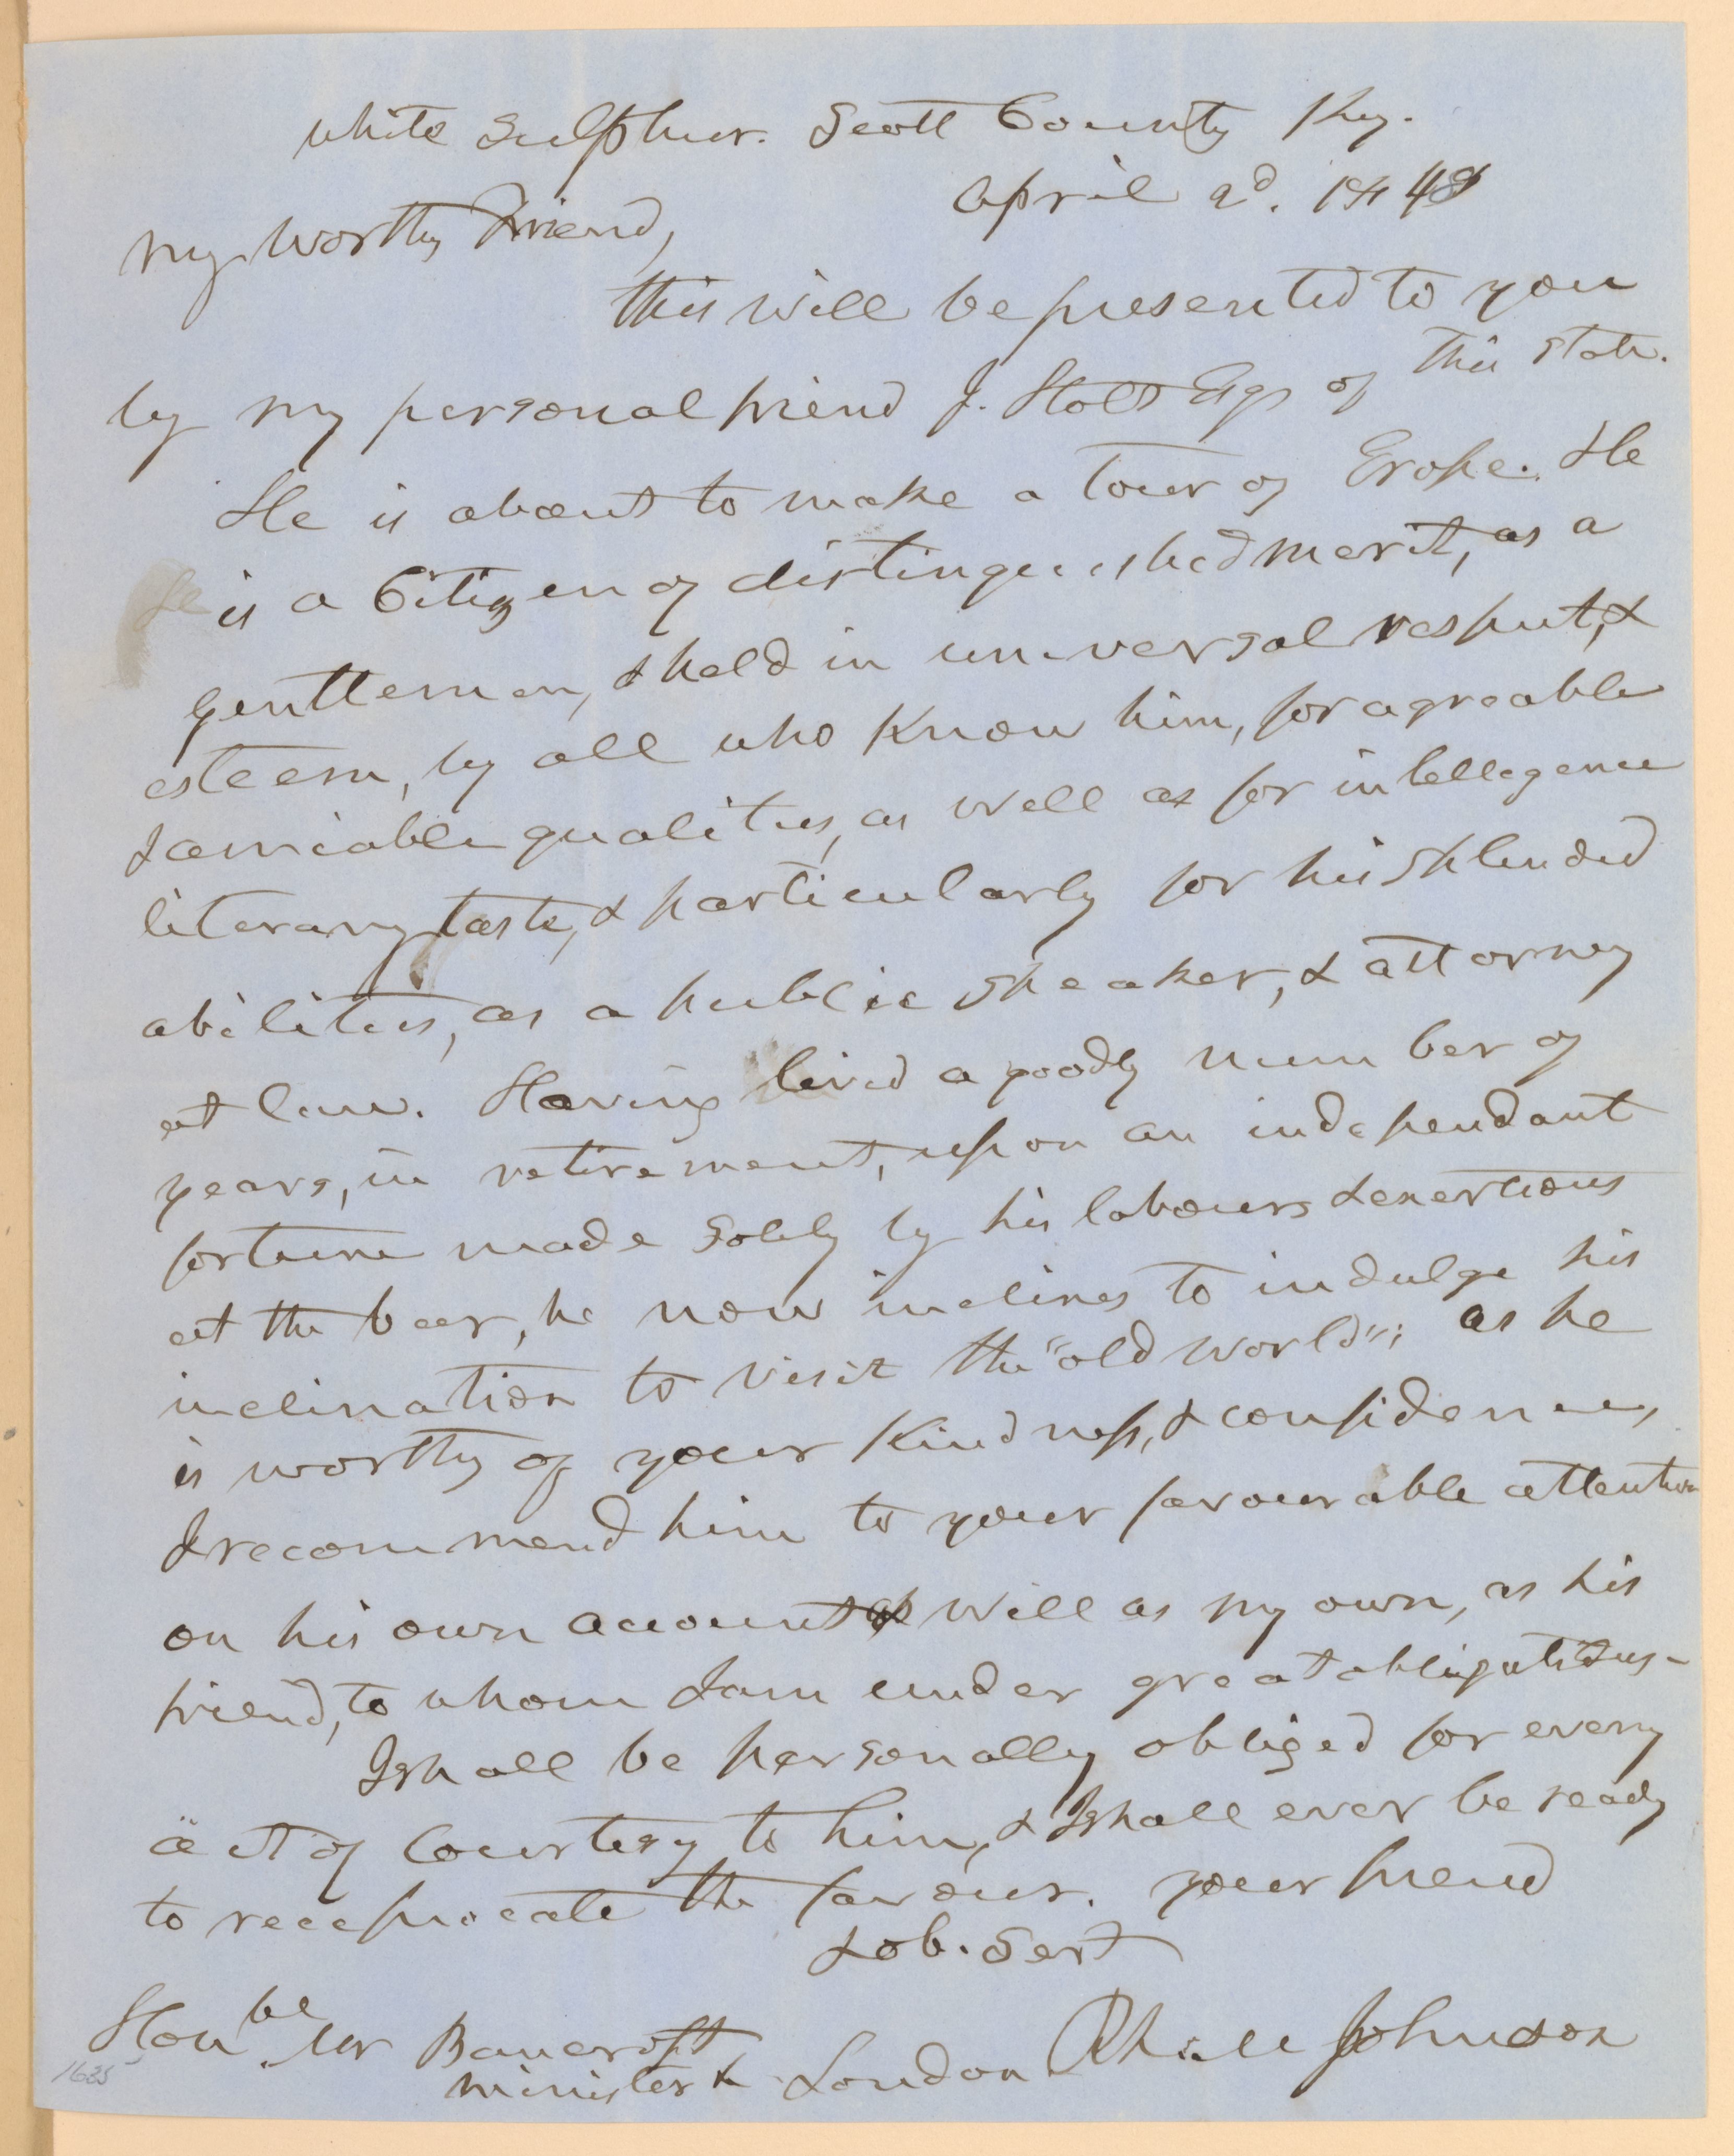 White Sulphur. Scott County Ky.
April 2d. 1848
My worthy Friend,
this will be presented to you
by my personal friend J. Holt Esqr of this State.
He is about to make a tour of Erope. He
is a Citizen of distinguished merit, as a
gentleman, & held in universal respect, &
esteem, by all who Know him, for agreable
& amiable qualities, as well as for intellegence
literary taste, & particularly for his splended
abilities, as a public speaker, & attorney
at law. Having lived a goodly number of
years, in retirement, upon an independant
fortune made solely by his labours & exertions
at the bar, he now inclines to indulge his
inclination to visit the "old world"; as he
is worthy of your Kindness, & confidence,
I recommend him to your favourable attention
on his own account as well as my own, as his
friend, to whom I am under great obligations-
I shall be personally obliged for every
act of courtesy to him, & I shall ever be ready
to reciprocate the favour. your friend
& ob. Sert
Rh: M Johnson
Honble Mr Bancroft
minister & London
1635